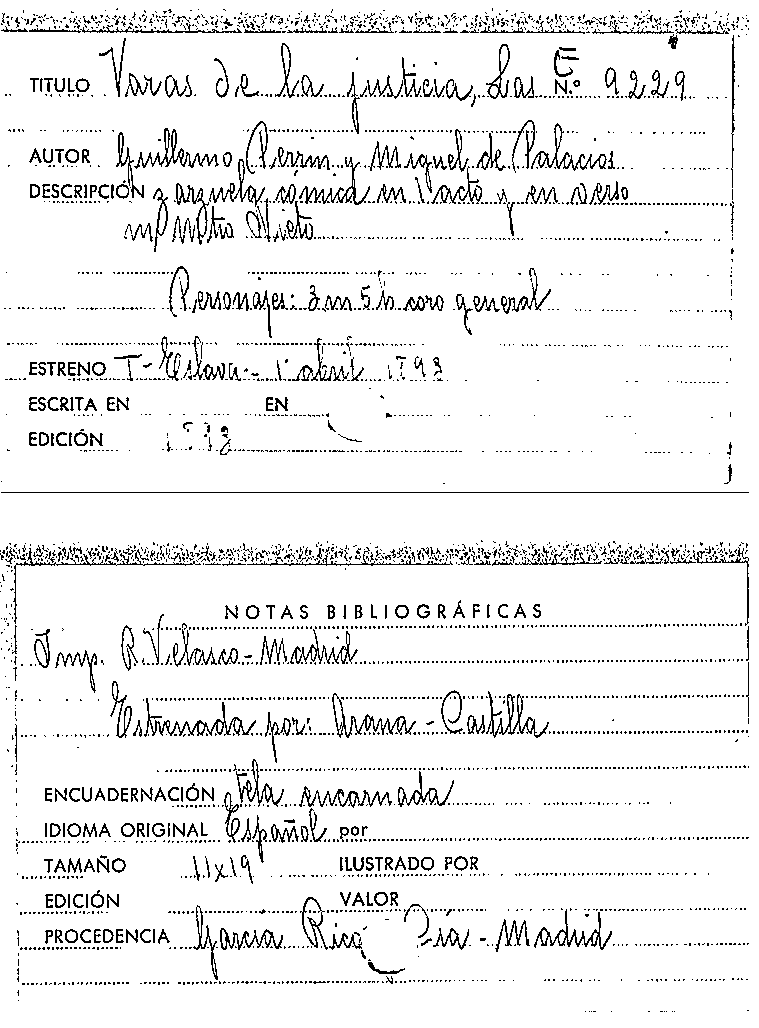 E
TITULO Varas de la justicia, Las N.º 9229
AUTOR Guillermo Perrin y Miguel de Palacios
DESCRIPCIÓN zarzuela cómica en 1 acto y en verso
Mtro Nieto
Personajes: 3 m 5 h coro general
ESTRENO T- Eslava - 1º abril
ESCRITA EN EN
EDICIÓN
NOTAS BIBLIOGRÁFICAS
Imp. R. Velasco - Madrid
Estrenada por: Arana - Castilla
ENCUADERNACIÓN tela encarnada
IDIOMA ORIGINAL Español por
TAMAÑO 11x19 ILUSTRADO POR
EDICIÓN VALOR
PROCEDENCIA García Rico - Madrid